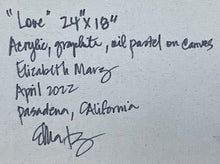 "Love" 24"x18"
Acrylic, graphite, oil pastel on Canvas
Elizabeth Marz
April 2022
Pasadena, California
EMarz